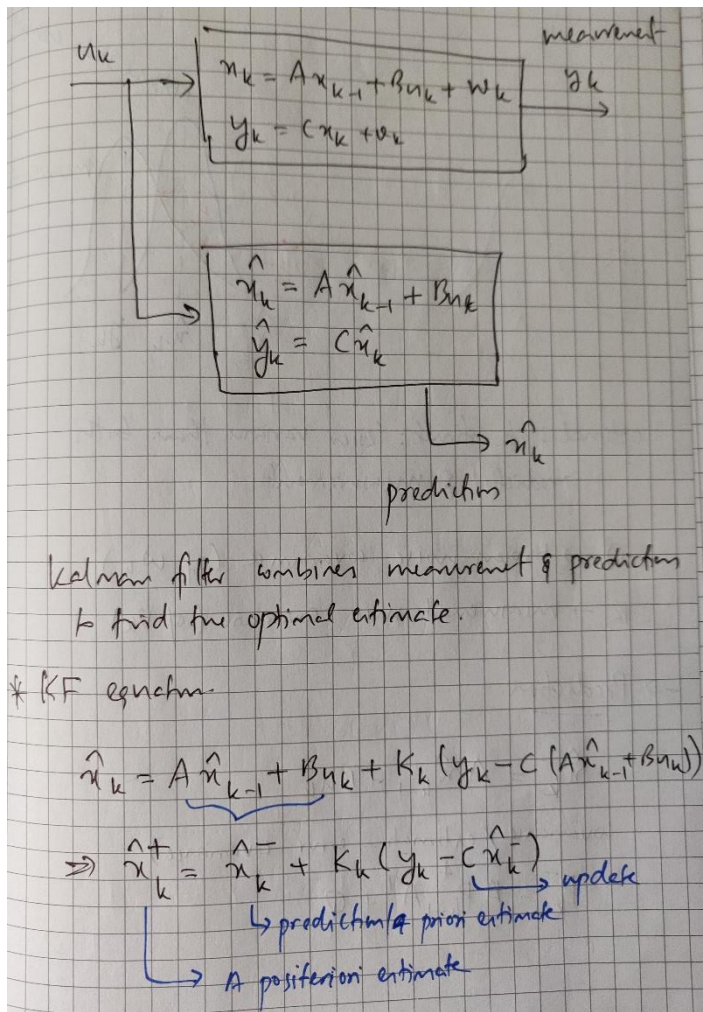 u_k
measurement
y_k
x_k = Ax_{k-1} + Bu_k + w_k
y_k = Cx_k + v_k
x̂_k = Ax̂_{k-1} + Bu_k
ŷ_k = Cx̂_k
x̂_k
prediction
Kalman filter combines measurement & prediction
to find the optimal estimate.
* KF equation
x̂_k = Ax̂_{k-1} + Bu_k + K_k (y_k - C (Ax̂_{k-1} + Bu_k))
⇒ x̂_k^+ = x̂_k^- + K_k (y_k - Cx̂_k^-)
update
prediction/a priori estimate
A positeriori estimate